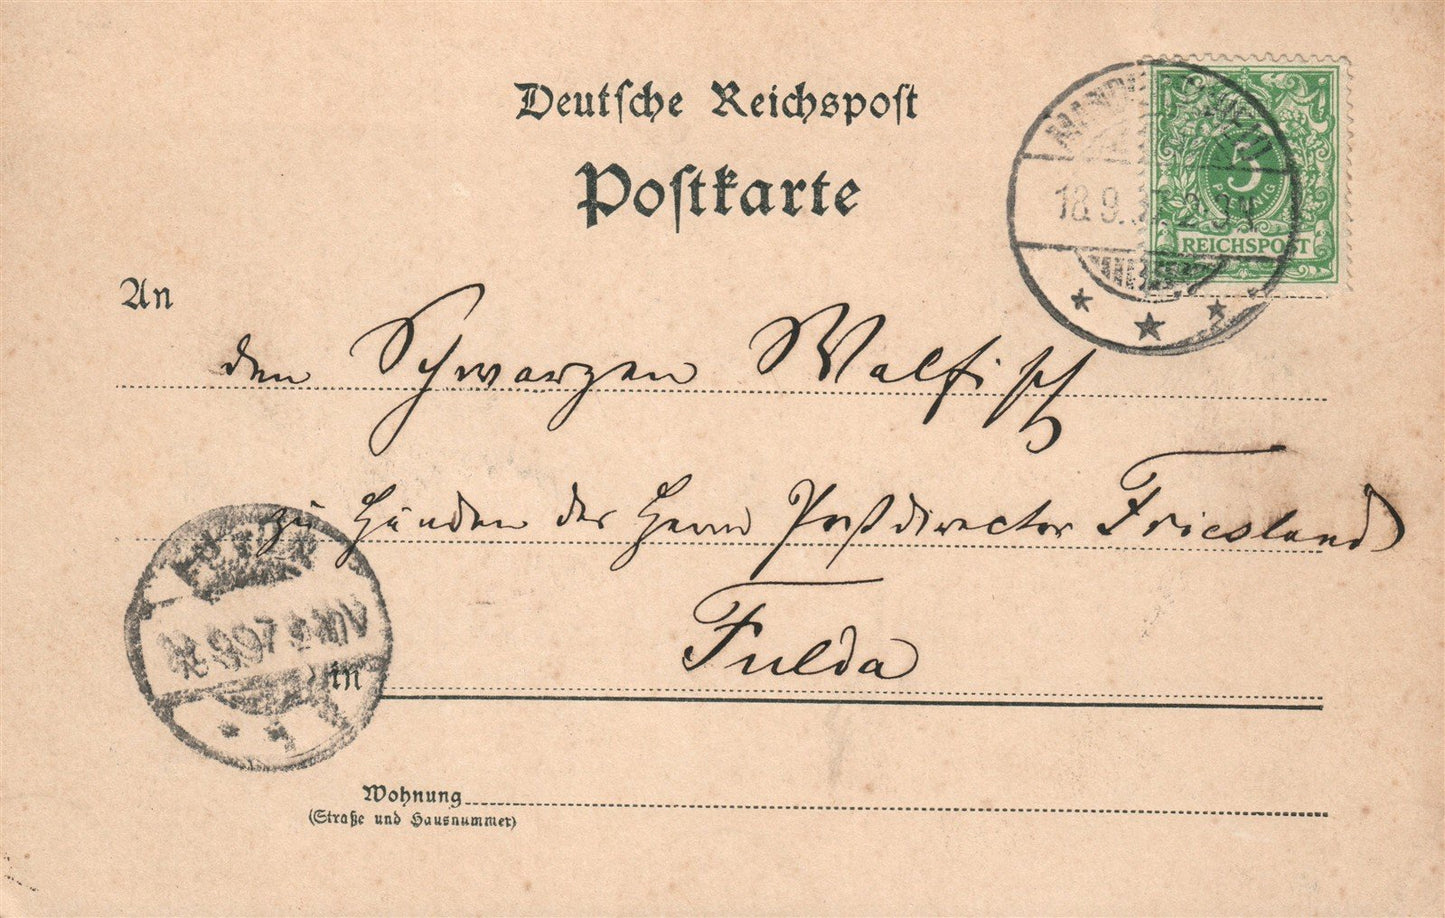 Deutsche Reichspost
Postkarte
5
PFENNIG
REICHSPOST
18.9.97. 2-3N
An
den Schwarzen Walfisch
zu Händen des Herrn Postdirector Friesland
in Fulda
Wohnung
(Straße und Hausnummer)